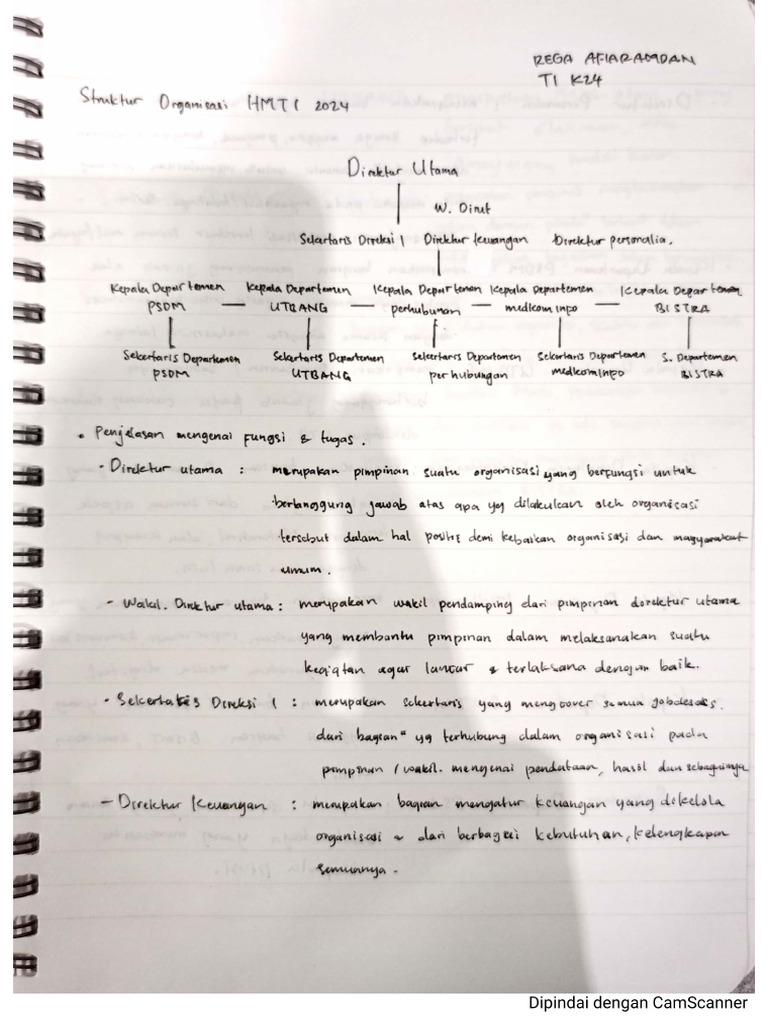 REGA AFIARAMDAN
TI K24
Struktur Organisasi HMTI 2024
Direktur Utama
W. Dirut
Sekertaris Direksi 1 Direktur keuangan Direktur personalia.
Kepala Departemen Kepala Departemen Kepala Departemen Kepala Departemen Kepala Departemen
PSDM — UTBANG — perhubunan — medkominpo — BISTRA
Sekertaris Departemen Sekertaris Departemen Sekertaris Departemen Sekertaris Departemen S. Departemen
PSDM UTBANG perhubungan medkominpo BISTRA
• Penjelasan mengenai fungsi & tugas.
- Direktur utama : merupakan pimpinan suatu organisasi yang berfungsi untuk
bertanggung jawab atas apa yg dilakukan oleh organisasi
tersebut dalam hal positif demi kebaikan organisasi dan masyarakat
umum.
- Wakil. Direktur utama : merupakan wakil pendamping dari pimpinan direktur utama
yang membantu pimpinan dalam melaksanakan suatu
kegiatan agar lancar & terlaksana dengan baik.
- Sekertaris Direksi 1 : merupakan sekertaris yang mengcover semua jobdesks.
dari bagian" yg terhubung dalam organisasi pada
pimpinan / wakil. mengenai pendataan, hasil dan sebagainya
- Direktur Keuangan : merupakan bagian mengatur keuangan yang dikelola
organisasi & dari berbagai kebutuhan, kelengkapan
semuanya.
Dipindai dengan CamScanner